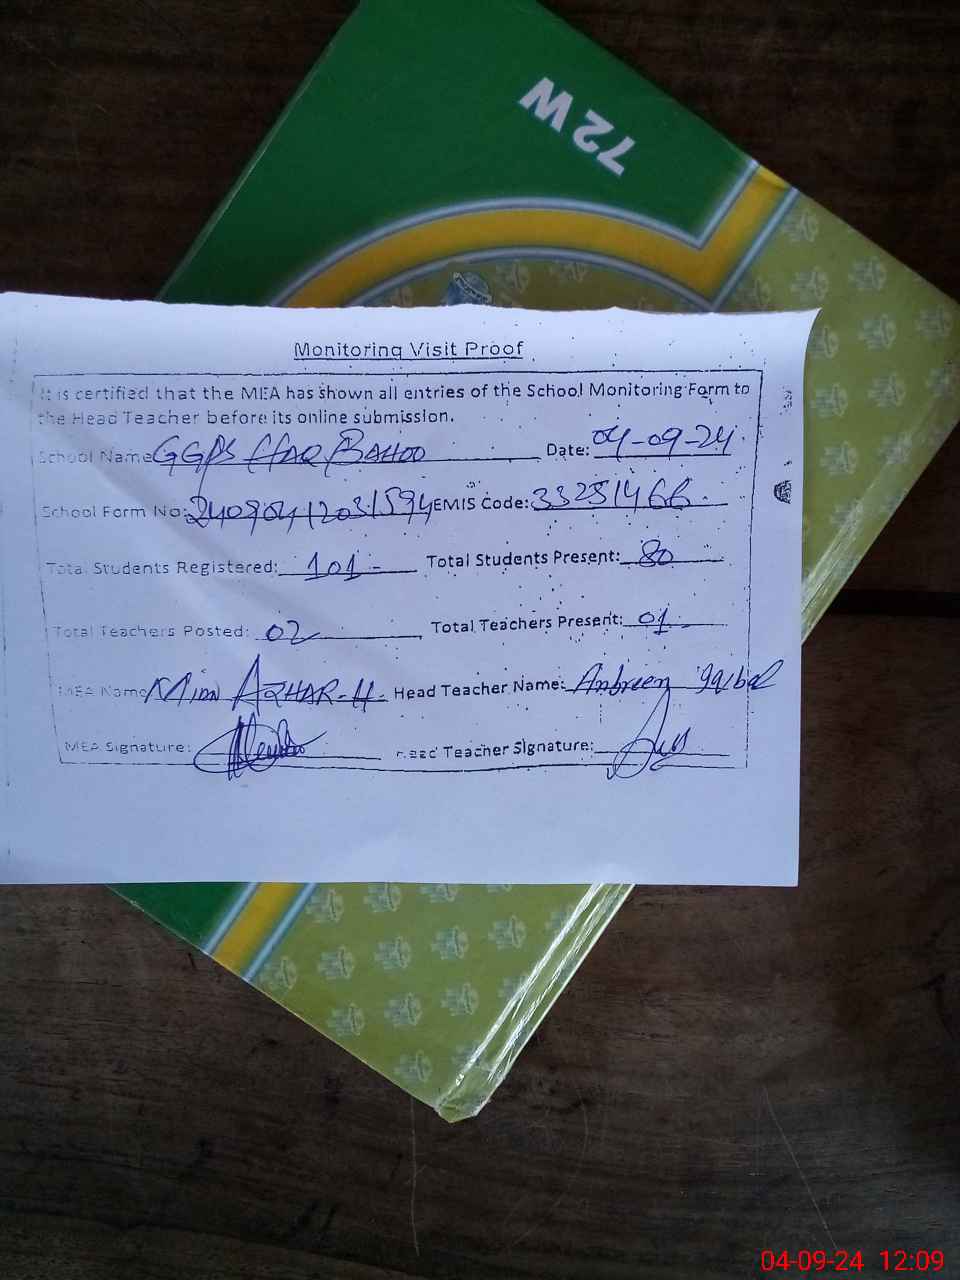 72 W
Monitoring Visit Proof
It is certified that the MEA has shown all entries of the School Monitoring Form to
the Head Teacher before its online submission.
School Name: GGPS HAQ BAHOO Date: 04-09-24
School Form No: 24090412031594 EMIS Code: 33251466
Total Students Registered: 101 Total Students Present: 80
Total Teachers Posted: 02 Total Teachers Present: 01
MEA Name AZHAR-H. Head Teacher Name: Ambreen Iqbal
MEA Signature: Head Teacher Signature:
04-09-24 12:09